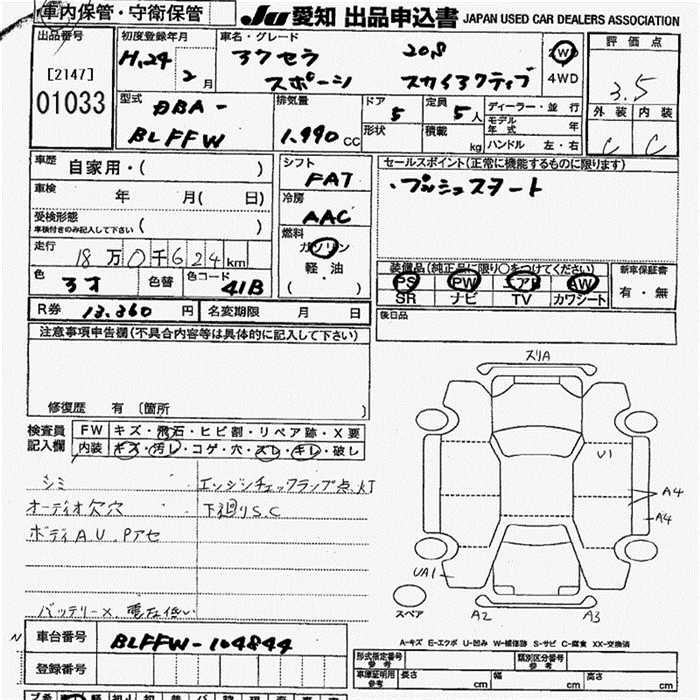 車内保管・守衛保管
JU 愛知 出品申込書 JAPAN USED CAR DEALERS ASSOCIATION
出品番号
[2147]
01033
初度登録年月
H,24
2 月
車名・グレード
アクセラ 20S
スポーツ スカイアクティブ
2WD
4WD
評価点
3.5
外装 内装
C C
型式
DBA-
BLFFW
排気量
1.990 CC
ドア 5
定員 5 人
形状
積載 kg
ディーラー・並行
モデル年式 年
ハンドル 左・右
車歴 自家用・( )
車検 年 月( 日)
受検形態
車検付きのみ記入して下さい ( )
走行 18 万 0 千 624 km
色 色替 色コード 41B
シフト
FAT
冷房
AAC
燃料
ガソリン
軽・油
( )
セールスポイント(正常に機能するものに限ります)
・プッシュスタート
装備品(純正品に限り〇をつけてください)
PS PW エアB AW
SR ナビ TV カワシート
新車保証書
有・無
後日品
R券 13.360 円 名変期限 月 日
注意事項申告欄(不具合内容等は具体的に記入して下さい)
修復歴 有 〔箇所 〕
検査員
記入欄
FW キズ・飛石・ヒビ割・リペア跡・X要
内装 キズ・汚レ・コゲ・穴・スレ・キレ・破レ
シミ エンジンチェックランプ点灯
オーディオ欠穴 下廻りS.C
ボディAU.Pアセ
バッテリーX 電圧低い
スリA
U1
A4
A4
UA1
スペア
A2 A3
車台番号 BLFFW-104844
登録番号
A-キズ E-エクボ U-凹み W-補修跡 S-サビ C-腐食 XX-交換済
形式指定番号
参考
類別区分番号
参考
車庫証明用
参考
長さ cm 幅 cm 高さ cm